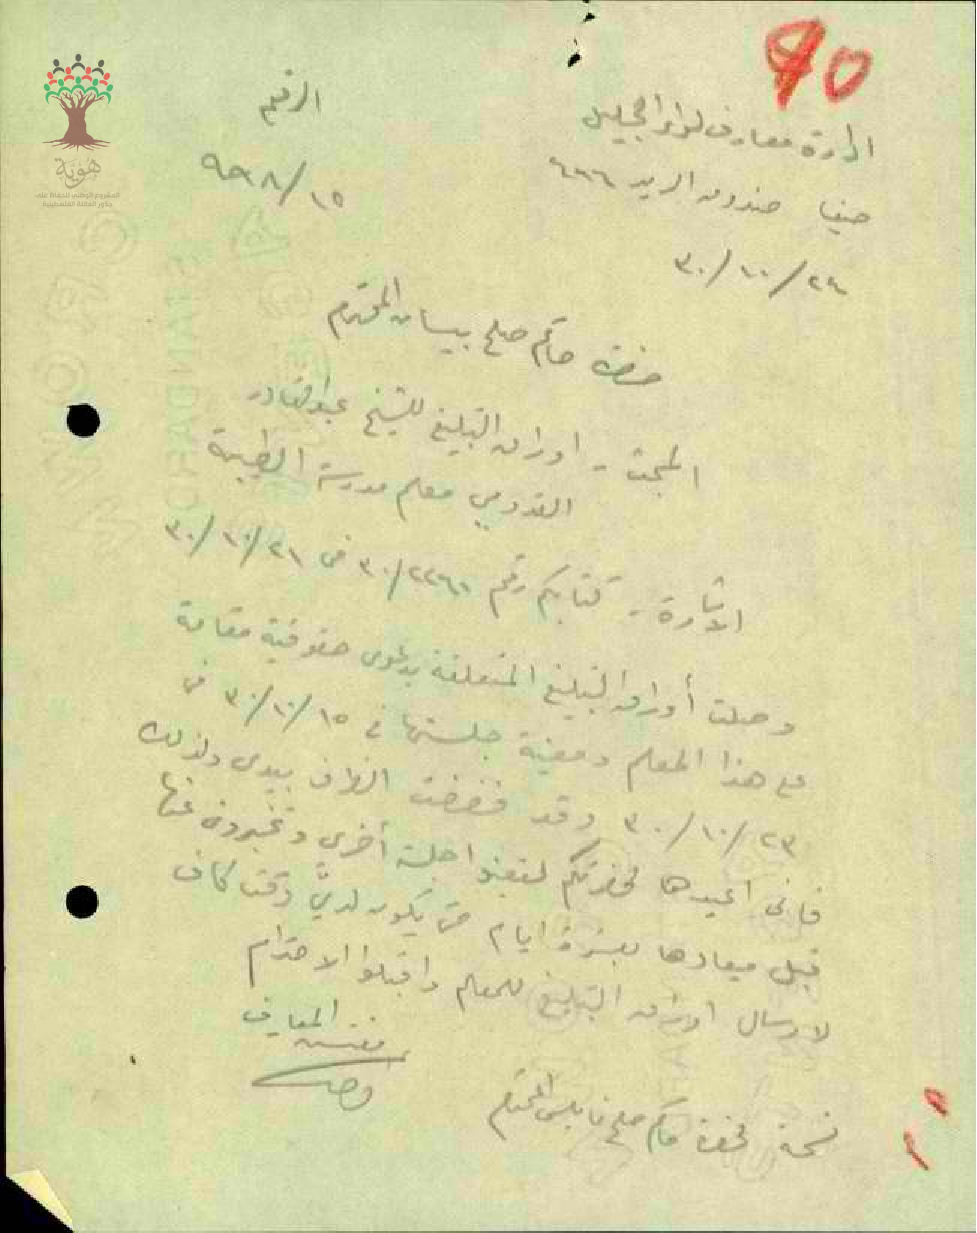 90
هوية
المشروع الوطني للحفاظ على
جذور العائلة الفلسطينية
الرقم
٩٣٨/١٥
ادارة معارف لواء الجليل
حيفا صندوق البريد
٣٠/١٠/٢٤
حضرة حاكم صلح بيسان المحترم
المبحث - اوراق التبليغ للشيخ عبد القادر
القدومي معلم مدرسة الطيبة
الاشارة - كتابكم رقم في ٣٠/١٠/٢١
وصلت أوراق التبليغ المتعلقة بدعوى حقوقية مقامة
على هذا المعلم ومعينة جلستها في ٣٠/١٠/١٥ في
٣٠/١٠/٢٣ وقد فضضت الظرف بيدى ولذلك
فانى اعيدها لحضرتكم لتعينوا جلسة أخرى وتخبرونى عنها
قبل ميعادها بعشرة ايام حتى يكون لديّ وقت كاف
لارسال اوراق التبليغ للمعلم واقبلوا الاحترام
مفتش المعارف
نسخة لحضرة حاكم صلح نابلس المحترم